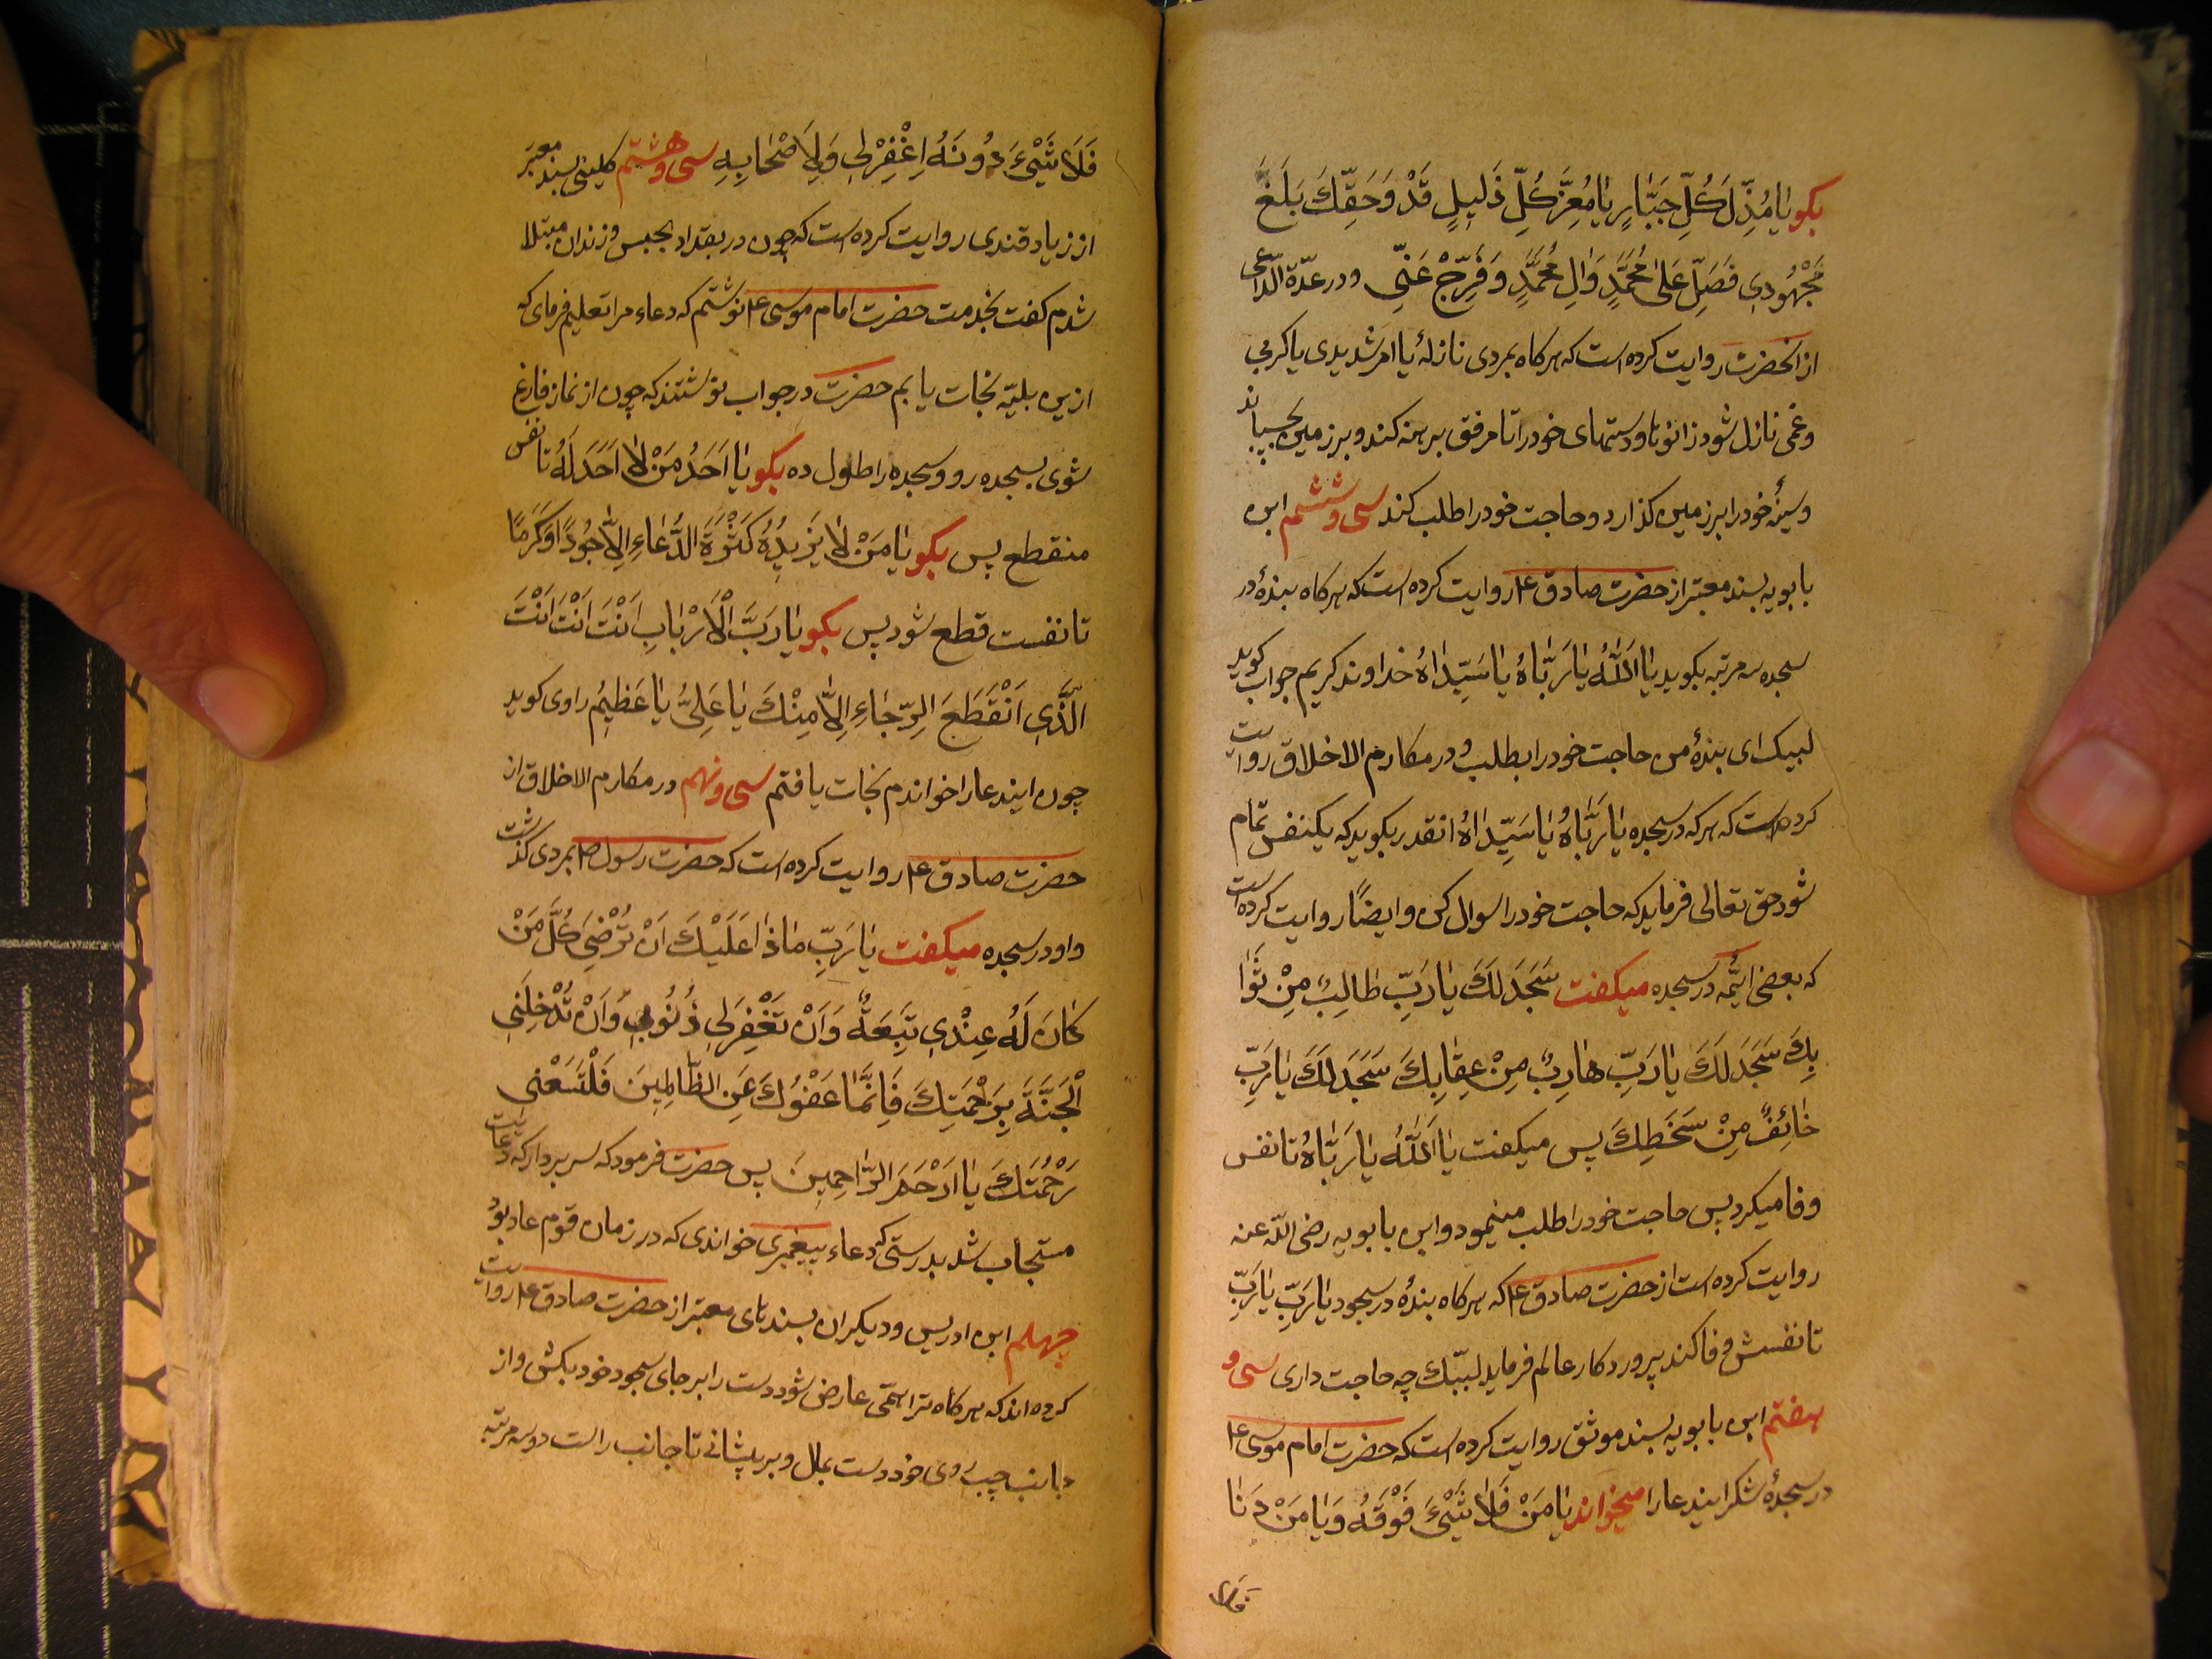 بکو یٰا مُذِلَّ كُلِّ جَبّٰارٍ یٰا مُعِزَّ كُلِّ ذَلیٖلٍ قَدْ وَحَقِّكَ بَلَغَ
مَجْهُودیٖ فَصَلِّ عَلیٰ مُحَمَّدٍ وَاٰلِ مُحَمَّدٍ وَفَرِّجْ عَنّیٖ و در عدّة الدّاعی
از انحضرت روایت کرده است که هرکاه بمردی نازلهٔ یا امر شدیدی یا کربی
و غمی نازل شود زانوها و دستهای خود را تا مرفق برهنه کند و برزمین بچسباند
و سینهٔ خود را برزمین کذارد و حاجت خود را طلب کند سی و ششم ابن
بابویه بسند معتبر از حضرت صادق ع روایت کرده است که هرکاه بندهٔ در
سجده سه مرتبه بکوید یٰا اَللّٰهُ یٰا رَبّٰاهُ یٰا سَیِّدٰاهُ خداوند کریم جواب کوید
لبیک ای بندهٔ من حاجت خود را بطلب و در مکارم الاخلاق روایت
کرده است که هرکه در سجده یٰا رَبّٰاهُ یٰا سَیِّدٰاهُ انقدر بکوید که یکنفس تمام
شود حق تعالی فرماید که حاجت خود را سوال کن و ایضًا روایت کرده است
که بعضی ائمّه در سجده میکفت سَجَدَ لَكَ یٰا رَبِّ طٰالِبٌ مِنْ ثَوٰا
بِكَ سَجَدَ لَكَ یٰا رَبِّ هٰارِبٌ مِنْ عِقٰابِكَ سَجَدَ لَكَ یٰا رَبِّ
خٰائِفٌ مِنْ سَخَطِكَ پس میکفت یٰا اَللّٰهُ یٰا رَبّٰاهُ تا نفس
وفا میکرد پس حاجت خود را طلب مینمود و ابن بابویه رضی اللّه عنه
روایت کرده است از حضرت صادق ع که هرکاه بندهٔ در سجود یٰا رَبِّ یٰا رَبِّ
تا نفسش وفا کند پروردکار عالم فرماید لبیّك چه حاجت داری سی و
هفتم ابن بابویه بسند موثق روایت کرده است که حضرت امام موسی ع
در سجدهٔ شکر ایندعا را میخواند یٰا مَنْ فَلاٰ شَیْئَ فَوْقَهُ وَیٰا مَنْ دَنٰا
فَلاٰ
فَلاٰ شَیْئَ دُونَهُ اِغْفِرْ لیٖ وَلِاَصْحٰابِهِ سی و هشتم کلینی بسند معتبر
از زیاد قندی روایت کرده است که چون در بغداد بحبس و زندان مبتلا
شدم کفت بخدمت حضرت امام موسی ع نوشتم که دعاء مرا تعلیم فرمای که
ازین بلیّه نجات یابم حضرت در جواب نوشتند که چون از نماز فارغ
شوی بسجده رو و سجده را طول ده بکو یٰا اَحَدُ مَنْ لاٰ اَحَدَ لَهُ تا نفس
منقطع پس بکو یٰا مَنْ لاٰ یَزیٖدُهُ كَثْرَةُ الدُّعٰاءِ اِلاّٰ جُودًا وَكَرَمًا
تا نفست قطع شود پس بکو یٰا رَبَّ الْاَرْبٰابِ اَنْتَ اَنْتَ اَنْتَ
الَّذیٖ اَنْقَطَعَ الرِّجٰاءِ اِلاّٰ مِنْكَ یٰا عَلِیُّ یٰا عَظیٖمُ راوی کوید
چون ایندعا را خواندم نجات یافتم سی و نهم در مکارم الاخلاق از
حضرت صادق ع روایت کرده است که حضرت رسول ص بمردی کذشت
و او در سجده میکفت یٰا رَبِّ مٰا ذٰا عَلَیْكَ اَنْ تُرْضِیَ كُلَّ مَنْ
كٰانَ لَهُ عِنْدیٖ تَبِعَةٌ وَاَنْ تَغْفِرَ لیٖ ذُنُوبیٖ وَاَنْ تُدْخِلَنیٖ
الْجَنَّةَ بِرَحْمَتِكَ فَاِنَّمٰا عَفْوُكَ عَنِ الظّٰالِمیٖنَ فَلْتَسَعْنیٖ
رَحْمَتُكَ یٰا اَرْحَمَ الرّٰاحِمیٖنَ پس حضرت فرمود که سر بردار که دعایت
مستجاب شد بدرستی که دعاء پیغمبری خواندی که در زمان قوم عاد بود
چهلم ابن ادریس و دیکران بسندهای معتبر از حضرت صادق ع روایت
کرده اند که هرکاه ترا همّی عارض شود دست را بر جای سجود خود بکش و از
جانب چپ روی خود دست بمال و بر پیشانی تا جانب راست دو سه مرتبه